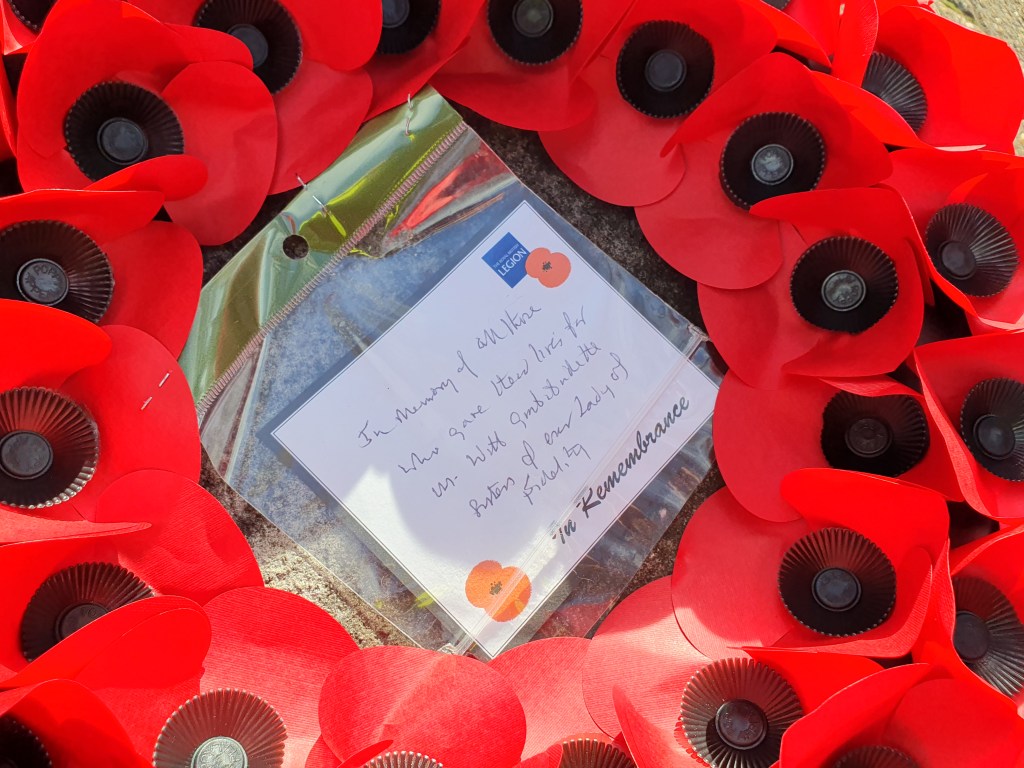 THE ROYAL BRITISH
LEGION
In Memory of all those
who gave their lives for
us. With gratitude the
Sisters of our Lady of
Fidelity
In Remembrance
POPPY